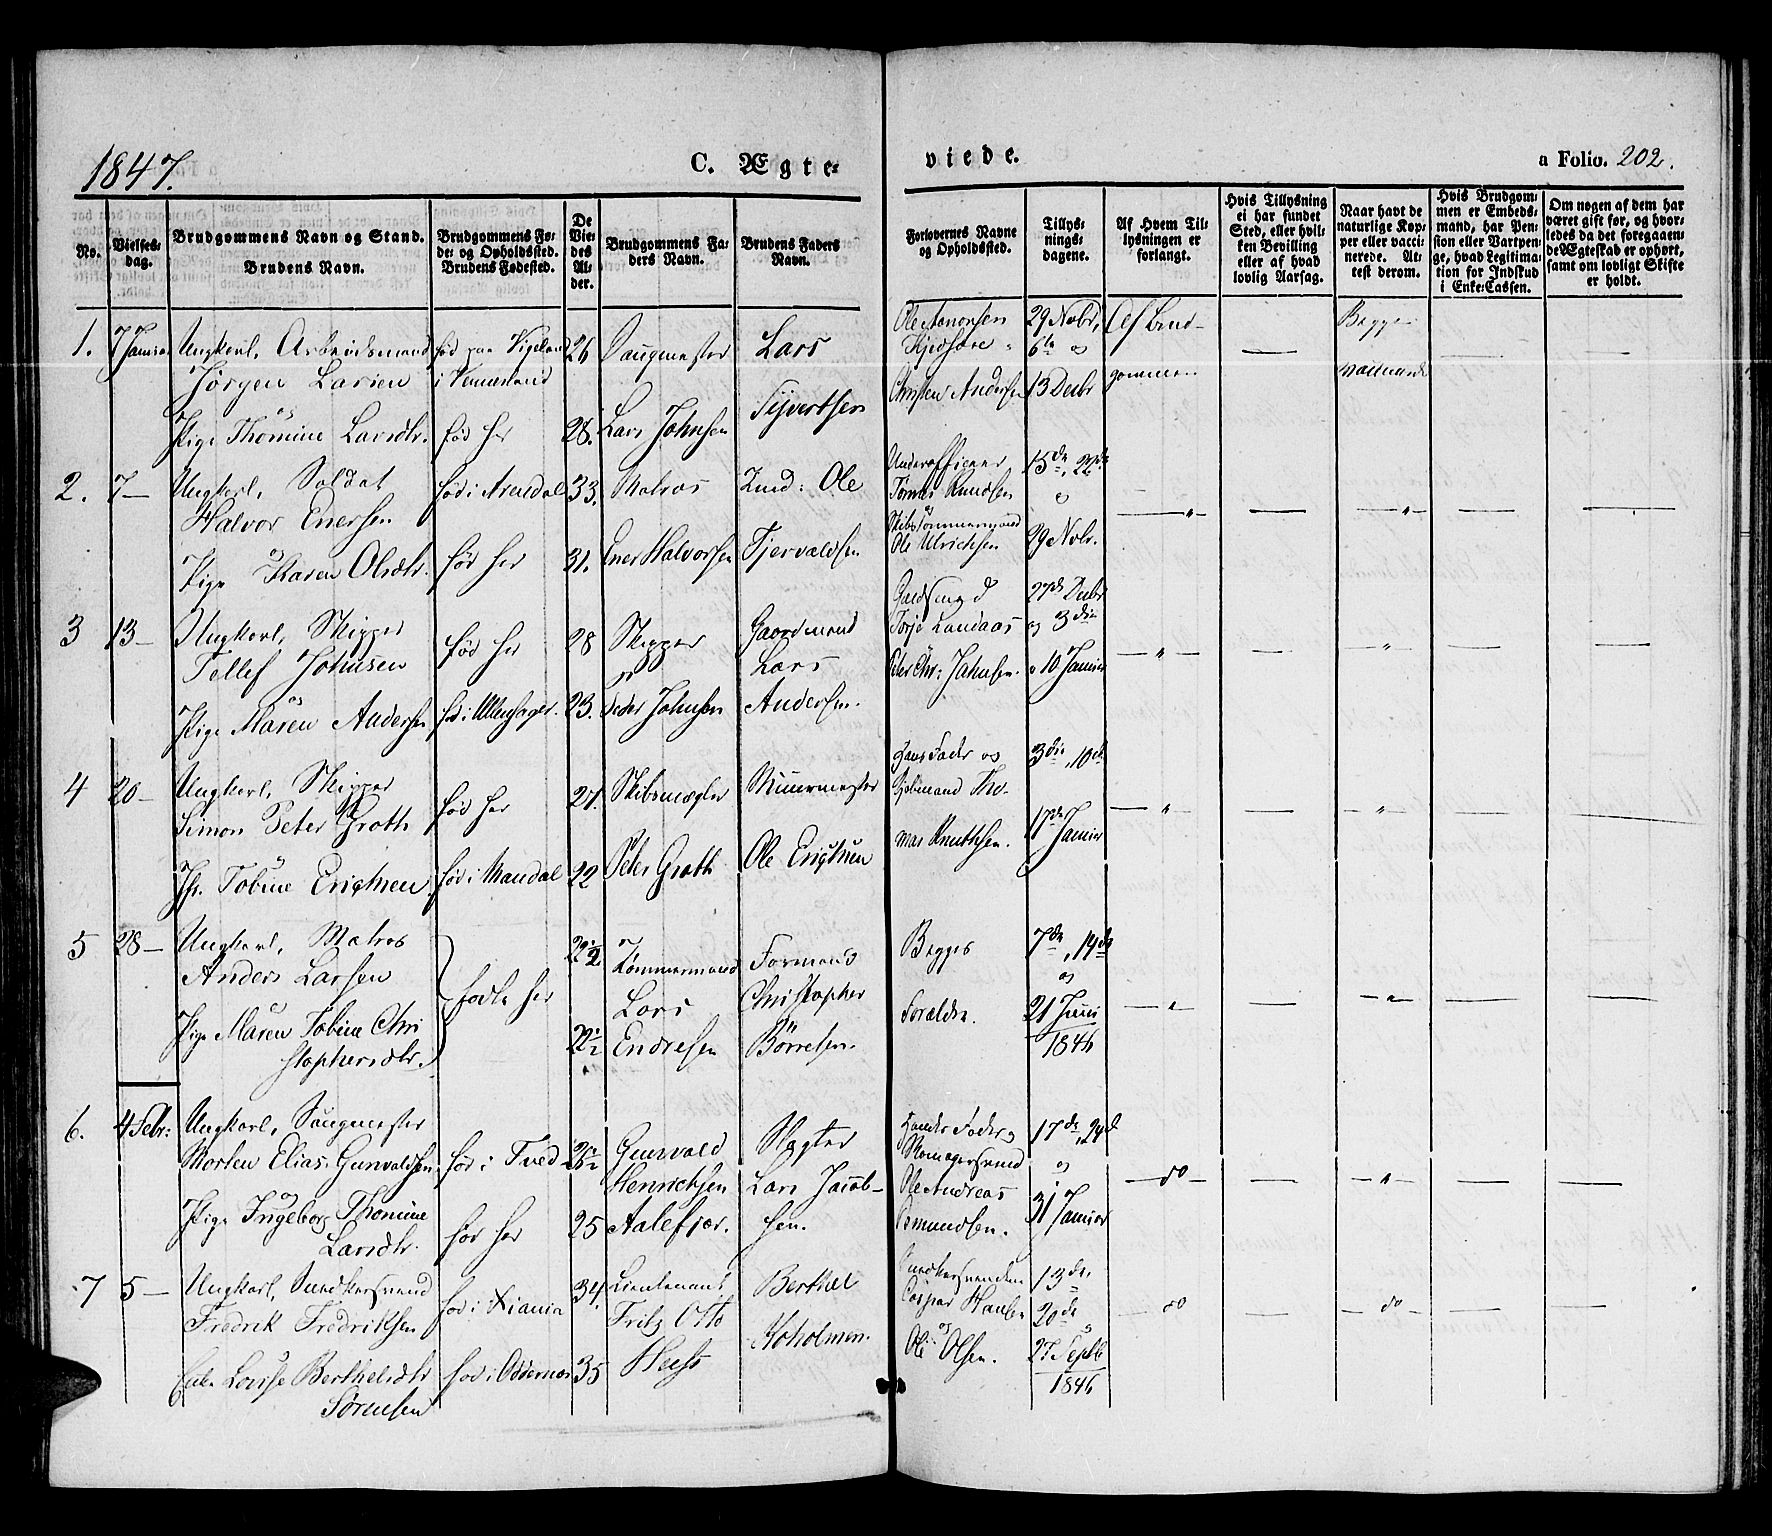 1847.
C. Ægte-
viede.
a Folio. 202.
No.
Vielses-
dag.
Brudgommens Navn og Stand.
Brudens Navn.
Brudgommens Fø-
de og Opholdssted.
Brudens Fødested.
De
Vie-
des
Al-
der.
Brudgommens Fa-
ders Navn.
Brudens Faders
Navn.
Forlovernes Navne
og Opholdssted.
Tillys-
nings-
dagene.
Af Hvem Til-
lysningen er
forlangt.
Hvis Tillysning
ei har fundet
Sted, eller hvil-
ken Bevilling
eller af hvad
lovlig Aarsag.
Naar havt de
naturlige Kop-
per eller vacci-
nerede. At-
test derom.
Hvis Brudgom-
men er Embeds-
mand, har Pen-
sion eller Vartpen-
ge, hvad Legitima-
tion for Indskud
i Enke-Cassen.
Om nogen af dem har
været gift før, og hvor-
ledes da det foregaaen-
de Ægteskab er ophørt,
samt om lovligt Skifte
er holdt.
1.
7 Januar
Ungkarl, Arbeidsmand
Jørgen Larsen
og
Pige Thomine Larsdtr.
fød paa Vigeland
i Vennesland
fød her
26
28.
Saugmester
Lars Johnsen
Lars
Sijvertsen
Ole Aanonsen
Christen Andersen
29 Novbr,
6te og
13 Decbr
Af Brud-
gommen
Begge
vaccinerede
2.
7 —
Ungkarl, Soldat
Halvor Enersen
og
Pige Karen Olsdtr.
fød i Arendal
fød her
33.
31.
Matros
Ener Halvorsen
Ole
Tjervaldsen
Underofficeer
Tønnes Knudsen
og
Skibstømmermand
Ole Ulrichsen
15de, 22de
og
29 Novbr.
— " —
— " —
3
13 —
Ungkarl, Skipper
Tellef Johnsen
og
Pige Maren Andersen
fød her
fød i Ullensager.
28
23.
Skipper
Peder Johnsen
Gaardmand
Lars
Andersen.
Torje Landaas
Peter Chr: Jahnsen.
27de Decbr
og 3die
10 Januar
— " —
— " —
4
20 —
Ungkarl, Skipper
Simon Peter Groth
og
Jfr. Tobine Erichsen
fød her
fød i Mandal
27.
22
Skibsmægler
Peter Groth
Muurmester
Ole Erichsen
Hans Fader og
Kjøbmand Tho-
mas Knuthsen.
3die, 10de
17de Januar
— " —
— " —
5
28 —
Ungkarl, Matros
Anders Larsen
og
Pige Maren Tobine Chri
stophersdtr.
fødte her
22 1/2
22 1/2
Tømmermand
Lars
Endresen
Formand
Christopher
Börresen.
Begges
Forældre.
7de, 14de
og
21 Juni
1846
— " —
— " —
6.
4 Febr:
Ungkarl, Saugmester
Morten Elias Gunvaldsen
og
Pige Ingeborg Thomine
Larsdtr.
fød i Tved
fød her
26 1/2
25
Gunvald
Henrichsen
Aalefjær.
Slagter
Lars Jacob-
sen.
Hendes Fader og
Skomagersvend
Ole Andreas
Osmundsen.
17de, 24de
og
31 Januar
— do —
— " —
7
5 —
Ungkarl, Snedkersvend
Fredrik Fredriksen
og
Louise Berthelsdtr
Sørensen
fød i Xiania
fød i Oddernes
34.
35
Lieutenant
Fritz Otto
Berthel
Koholmen.
Snedkersvendene
Caspar Hansen
og
Ole Olsen.
13de,
20de
og
27 Septb
1846
— do
— do —